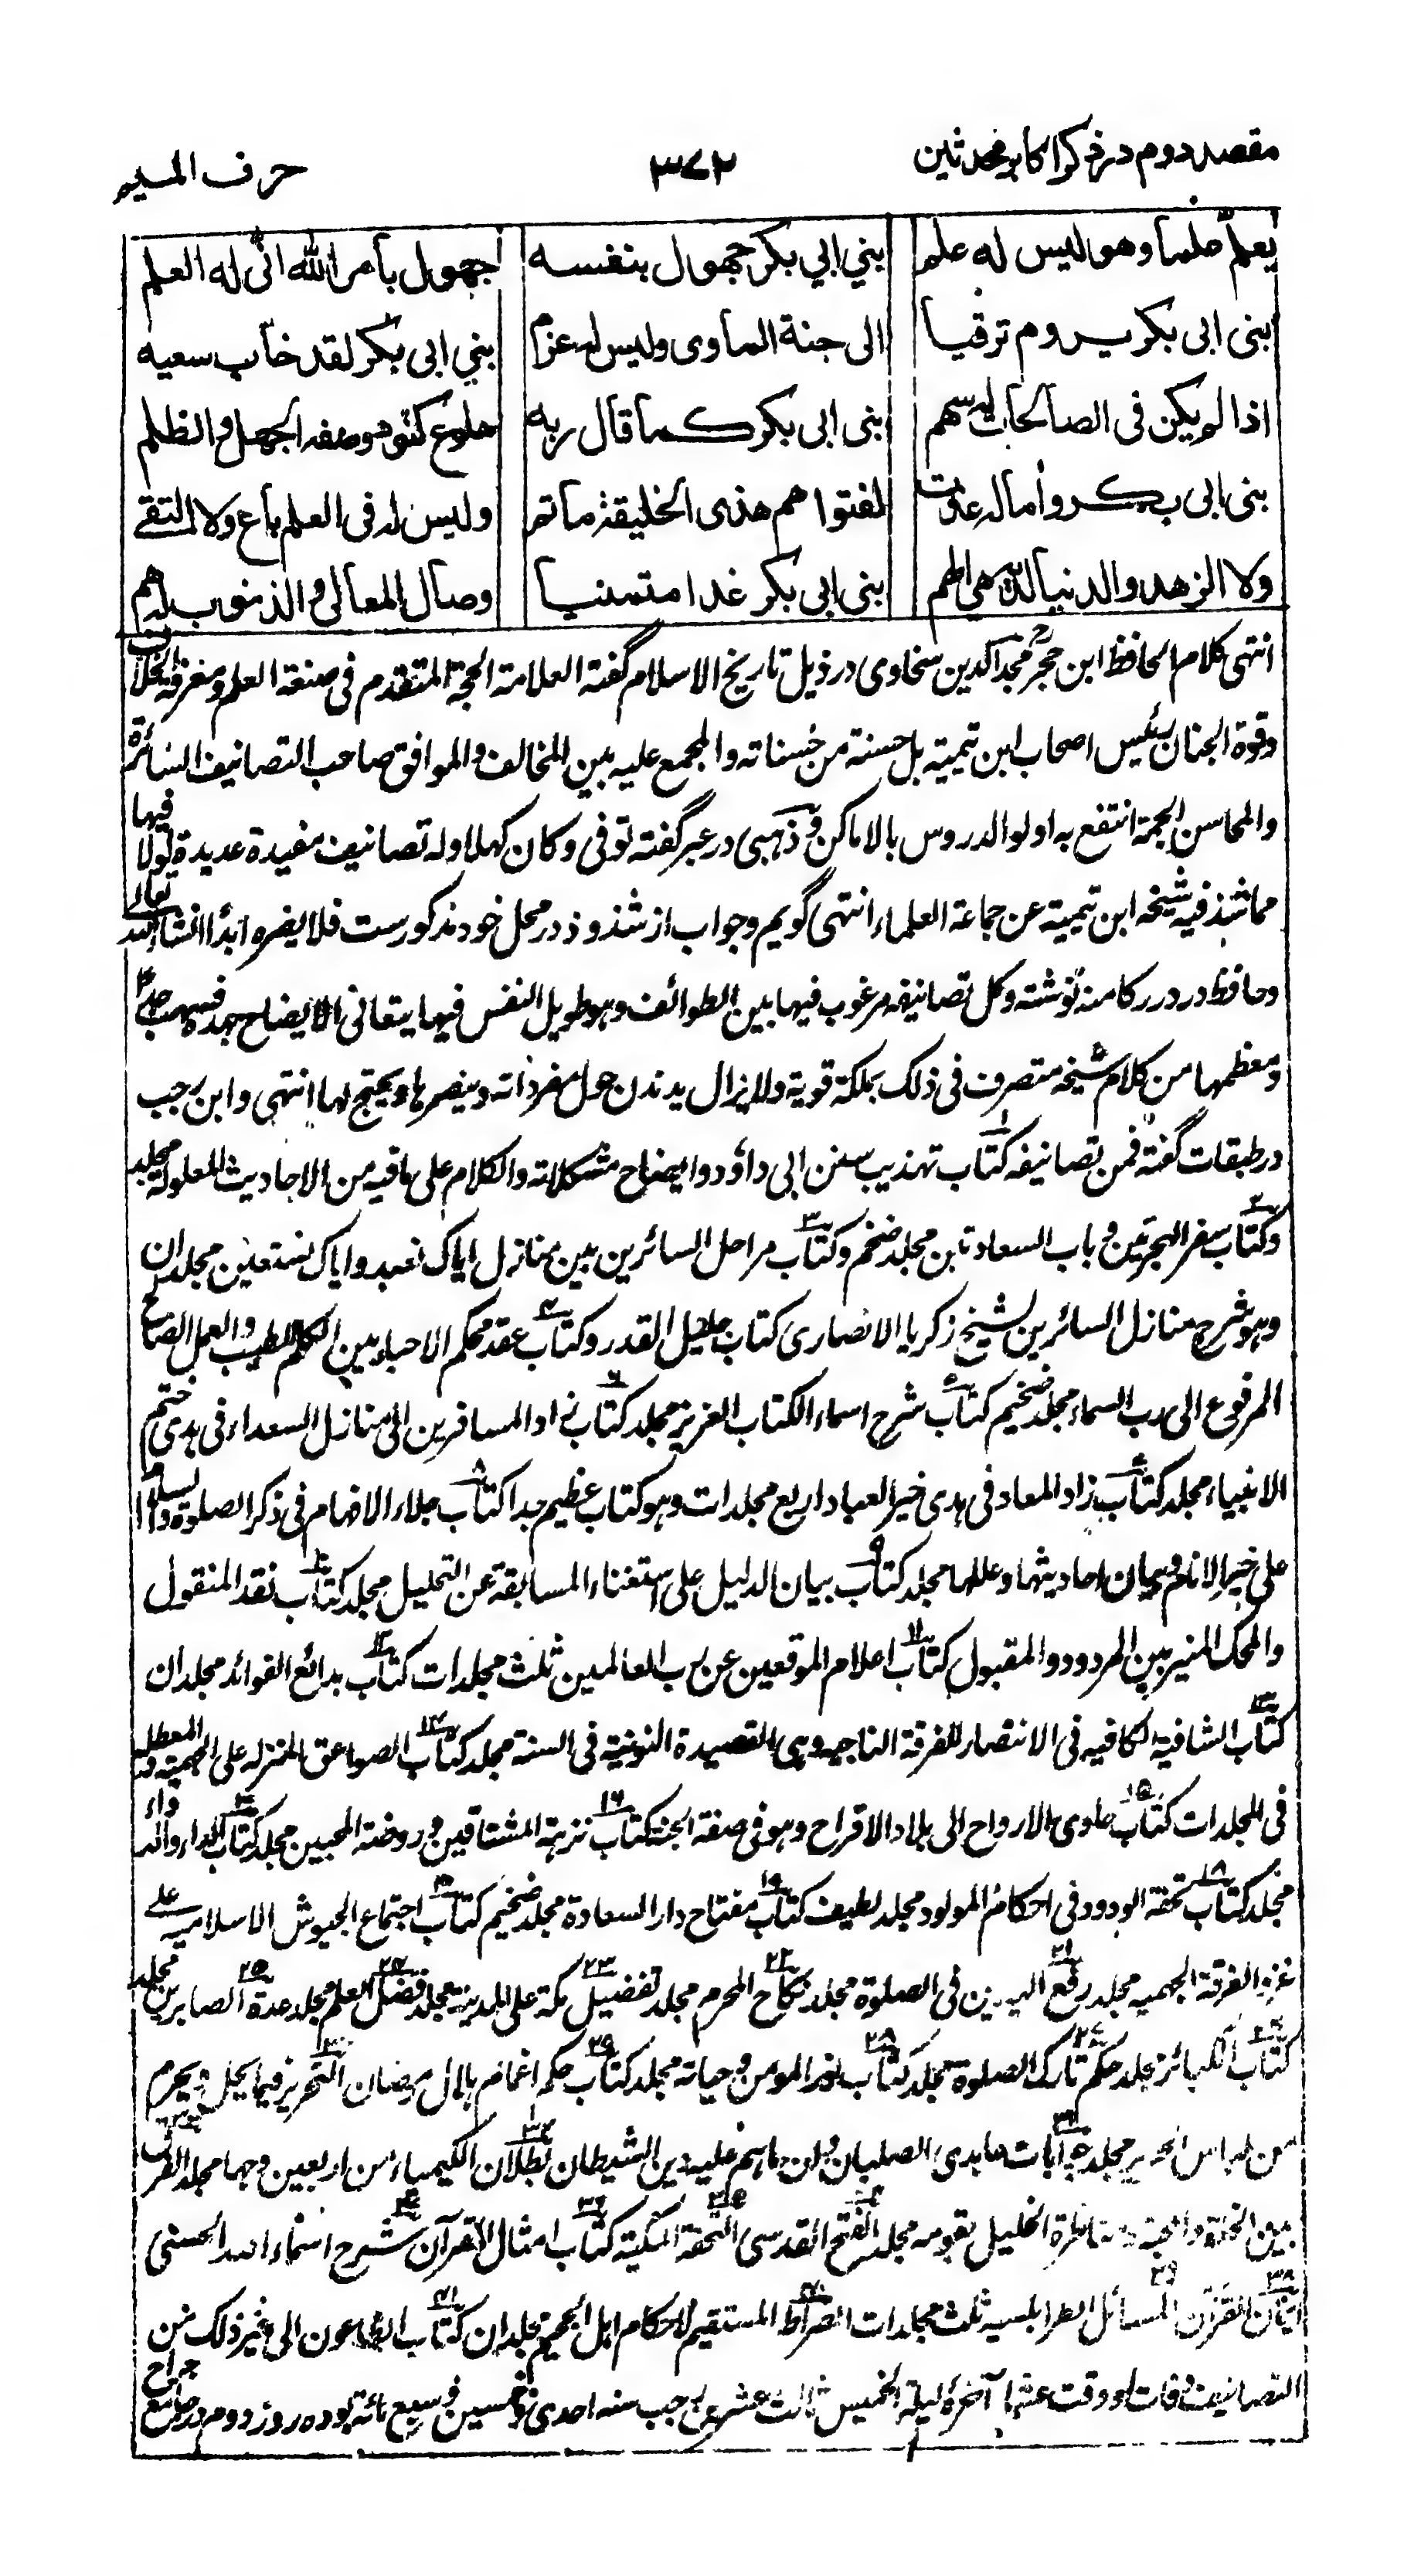 مقصد دوم در ذکر اکابر محدثین ۳۷۲ حرف المیم
یعلم علما وهو لیس له علم بني ابي بکر جهول بنفسه جهول بأمر الله انّٰى له العلم
بنی ابی بکر یروم ترقیا الی جنة الماوی ولیس له عزم بني ابی بکر لقد خاب سعیه
اذا لم یکن فی الصالحات له سهم بنی ابی بکر کما قال ربه هلوع کنود وصفه الجهل والظلم
بنی ابی بکر وأمثاله غدت لفتواهم هذی الخلیقة تأتم ولیس له فی العلم باع ولا التقی
ولا الزهد والدنیا لدیه هی الهم بنی ابی بکر غدا متمنیا وصال المعالی والذنوب له هم
انتهی کلام الحافظ ابن حجر مجد الدین سخاوی در ذیل تاریخ الاسلام گفته العلامة الحجة المتقدم فی صنعة العلم ومعرفة الخلاف
وقوة الجنان رئیس اصحاب ابن تیمیة بل حسنة من حسناته والمجمع علیه بین المخالف والموافق صاحب التصانیف السائرة
والمحاسن الجمة انتفع به اولو الدروس بالاماکن و ذهبی در عبر گفته توفی وکان کهلا وله تصانیف مفیدة عدیدة لولا فیها
مما شذ فیه شیخه ابن تیمیة عن جماعة العلماء انتهی گویم وجواب از شذوذ در محل خود مذکورست فلا یضره ابدا انشاء الله تعالی
وحافظ در درر کامنه نوشته وکل تصانیفه مرغوب فیها بین الطوائف وهو طویل النفس فیها یتعانی الایضاح جهده فیسهب جدا
ومعظمها من کلام شیخه متصرف فی ذلک بملکة قویة ولا یزال یدندن حول مفرداته وینصرها ویحتج لها انتهی وابن رجب
در طبقات گفته فمن تصانیفه کتاب تهذیب سنن ابی داؤد وایضاح مشکلاته والکلام علی مافیه من الاحادیث المعلولة مجلد
وکتاب سفر الهجرتین وباب السعادتین مجلد ضخم وکتاب مراحل السائرین بین منازل ایاک نعبد وایاک نستعین مجلدان
وهو شرح منازل السائرین لشیخ زکریا الانصاری کتاب جلیل القدر وکتاب عقد محکم الاحباء بین الکلم الطیب والعمل الصالح
المرفوع الی رب السماء مجلد ضخیم کتاب شرح اسماء الکتاب العزیز مجلد کتاب زاد المسافرین الی منازل السعداء فی هدی ختم
الانبیاء مجلد کتاب زاد المعاد فی هدی خیر العباد اربع مجلدات وهو کتاب عظیم جدا کتاب جلاء الافهام فی ذکر الصلوة والسلام
علی خیر الانام وبیان احادیثها وعللها مجلد کتاب بیان الدلیل علی استغناء المسابقة عن التحلیل مجلد کتاب نقد المنقول
والمحک المنیر بین المردود والمقبول کتاب اعلام الموقعین عن رب العالمین ثلث مجلدات کتاب بدائع الفوائد مجلدان
کتاب الشافیة الکافیه فی الانتصار للفرقة الناجیه وهی القصیدة النونیة فی السنة مجلد کتاب الصواعق المنزله علی الجهمیة والمعطله
فی المجلدات کتاب حاوی الارواح الی بلاد الافراح وهو فی صفة الجنة کتاب نزهة المشتاقین وروضة المحبین مجلد کتاب الداء والدواء
مجلد کتاب تحفة الودود فی احکام المولود مجلد لطیف کتاب مفتاح دار السعادة مجلد ضخیم کتاب اجتماع الجیوش الاسلامیه علی
غزو الفرقة الجهمیه مجلد رفع الیدین فی الصلوة مجلد نکاح المحرم مجلد تفضیل مکة علی المدینة مجلد فضل العلم مجلد عدة الصابرین مجلد
کتاب الکبائر مجلد حکم تارک الصلوة مجلد کتاب نور المومن وحیاته مجلد کتاب حکم اغمام هلال رمضان التحریر فیما یحل ویحرم
من لباس الحریر مجلد جوابات عابدی الصلبان وان ما هم علیه دین الشیطان بطلان الکیمیاء من اربعین وجها مجلد الفرق
بین الخلة والمحبة ومناظرة الخلیل بقومه مجلد الفتح القدسی التحفة المکیة کتاب امثال القرآن شرح اسماء الله الحسنی
ایمان القرآن المسائل الطرابلسیه ثلث مجلدات الصراط المستقیم لاحکام اهل الجحیم مجلدان کتاب الطاعون الی غیر ذلک من
التصانیف وفات او وقت عشاء آخرة لیلة الخمیس ثالث عشر رجب سنه احدی وخمسین وسبع مائة بوده روز دوم در جامع جراح